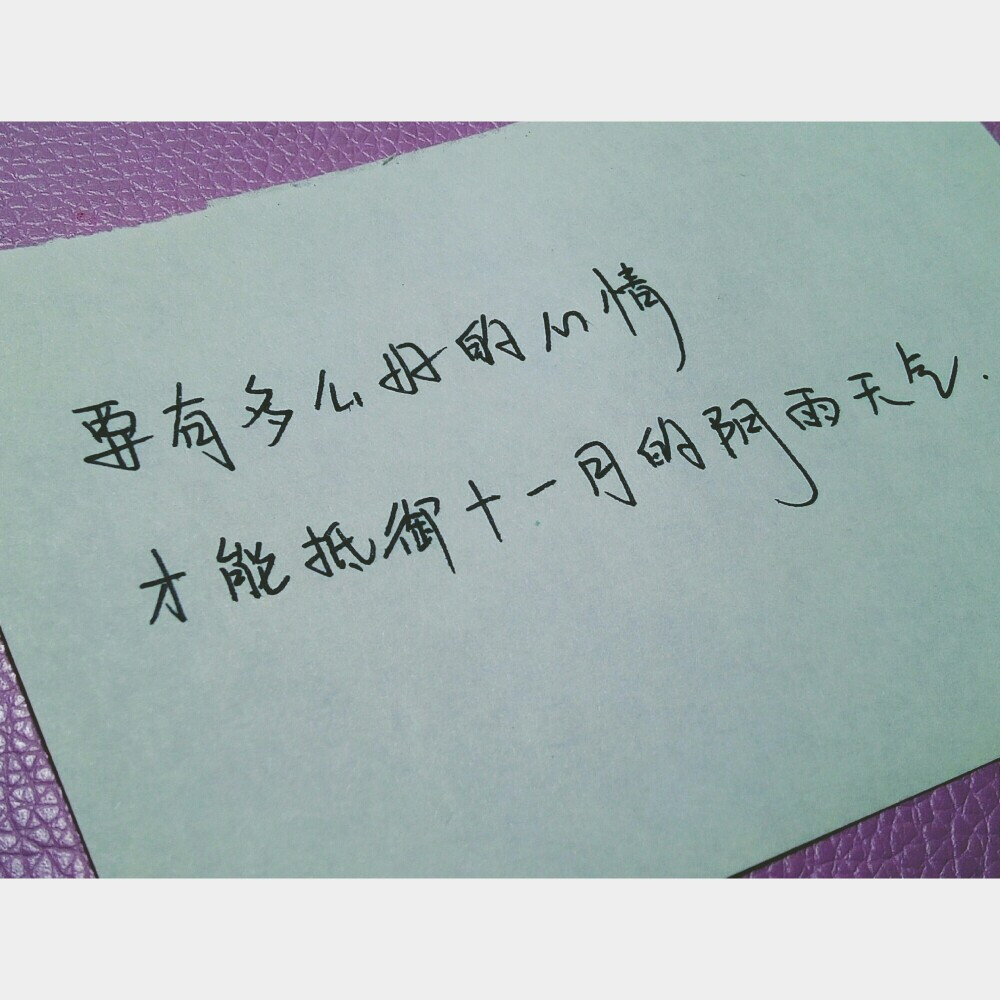 要有多么好的心情
才能抵御十一月的阴雨天气.